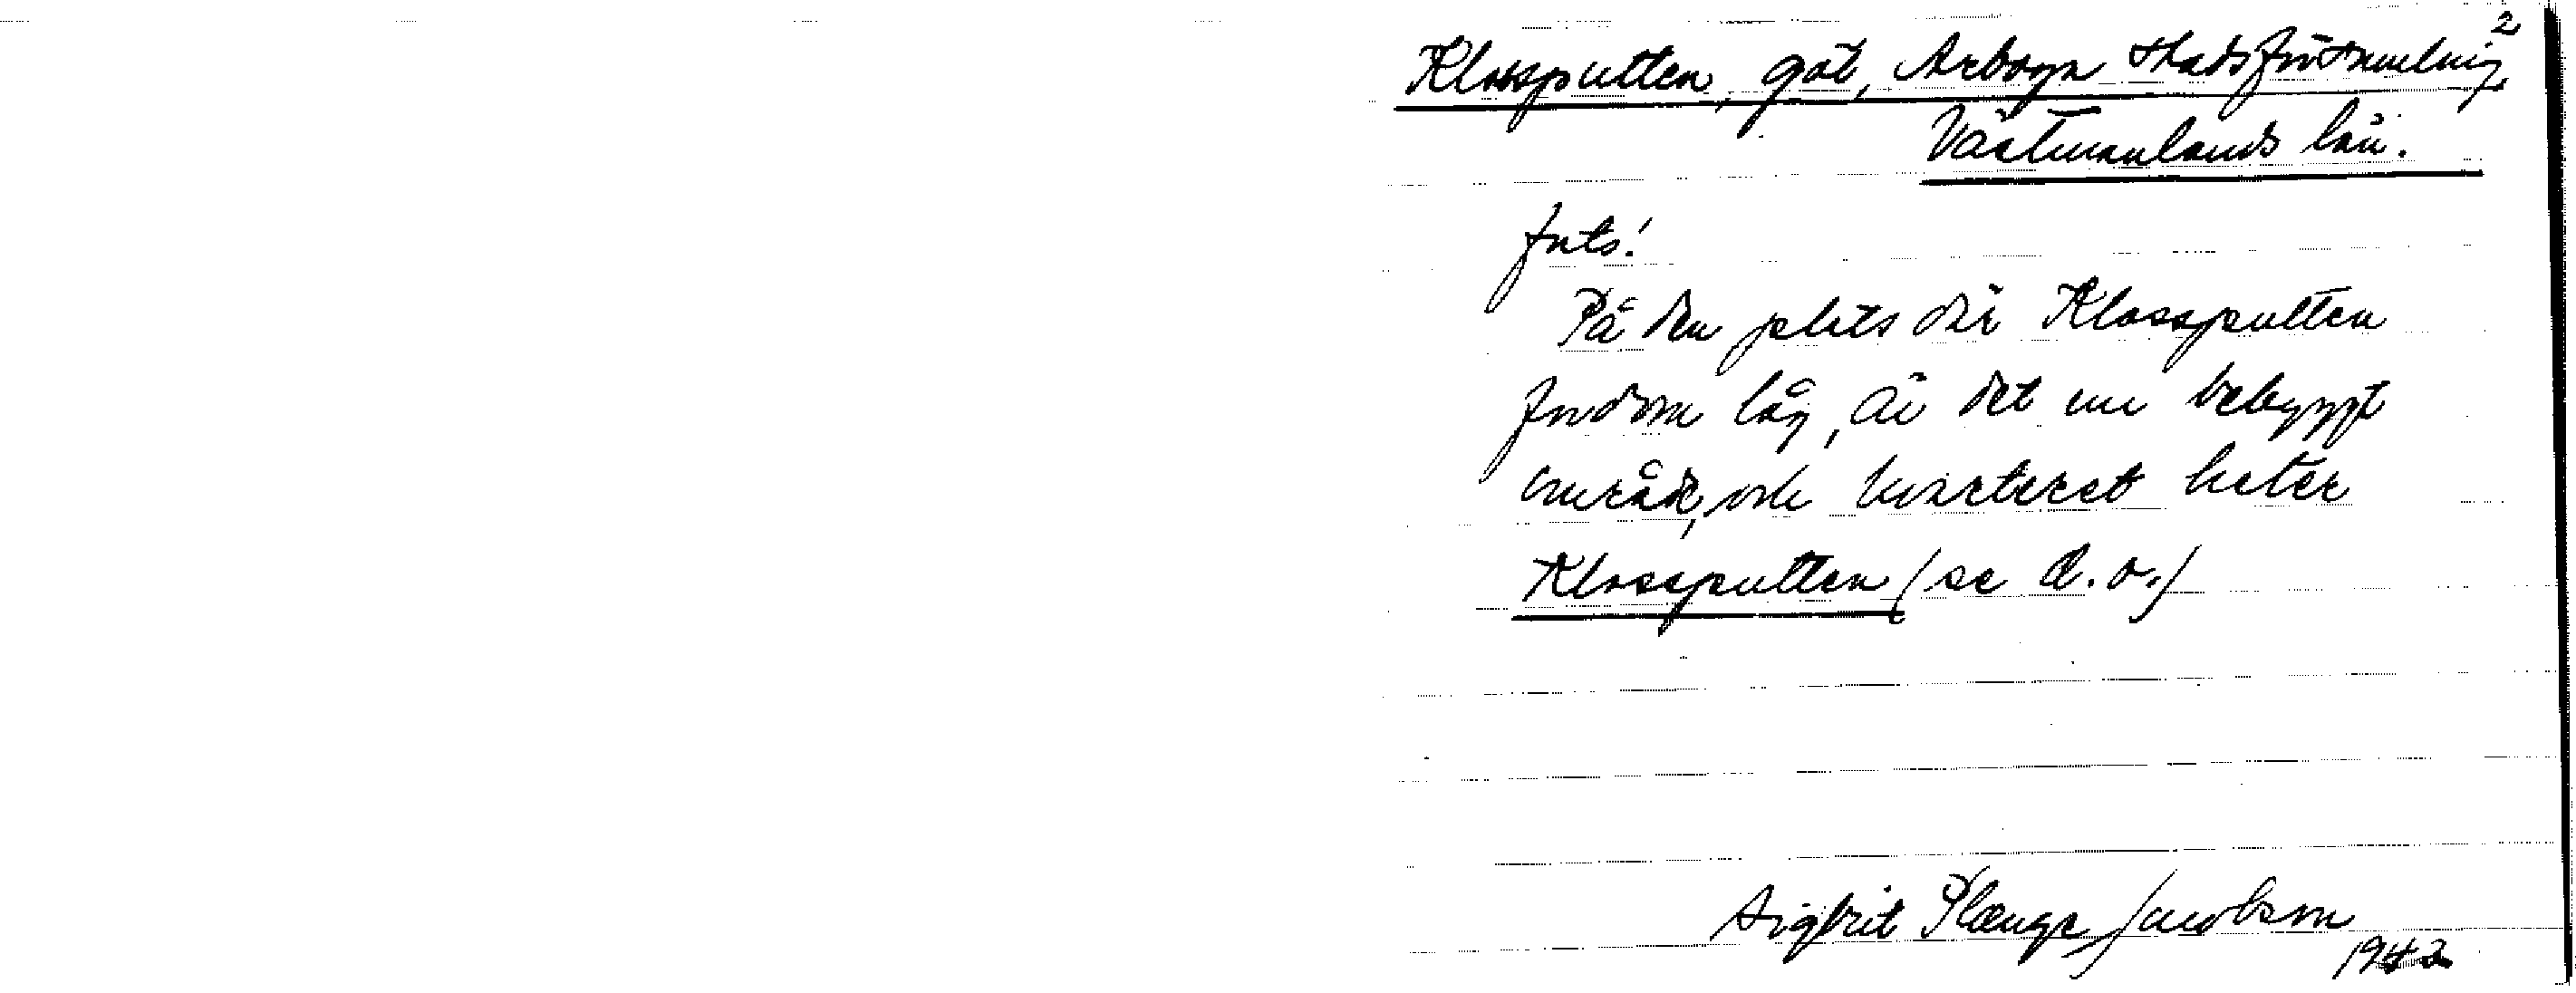 2
Klossputten, göl, Arboga stadsförsamling
Västmanlands län.
forts!
På den plats där Klossputten
fordom låg, är det nu bebyggt
område, och kvarteret heter
Klossputten (se d.o.)
Sigbrit Plænge Jacobson
1942